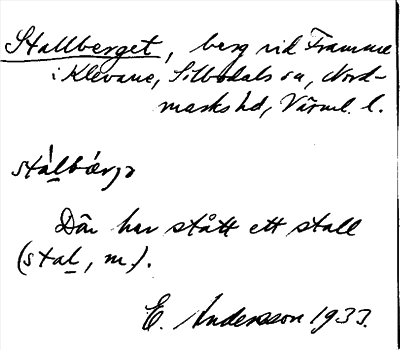 Stallberget, berg vid Framme
i Klevane, Silbodals sn, Nord-
marks hd, Värml. l.
stálbǽrjə
Där har stått ett stall
(stal, m.).
E. Andersson 1933.